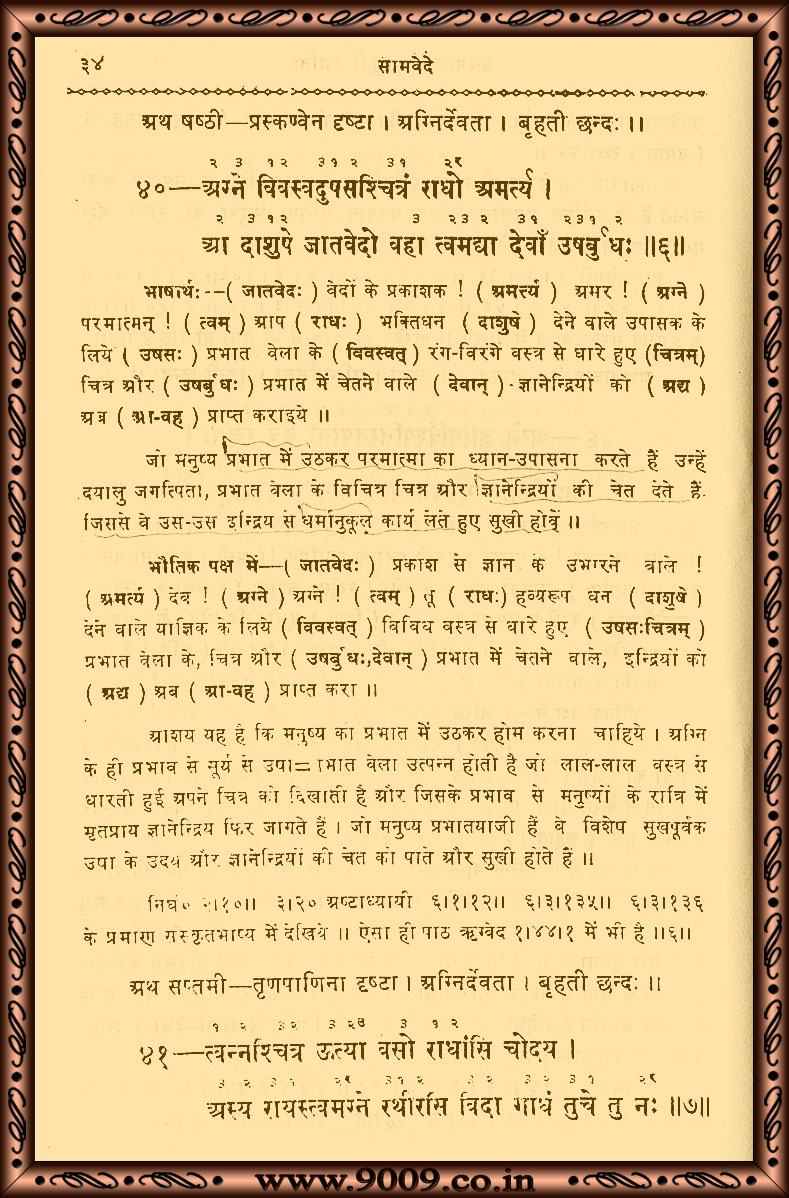 ३४ सामवेदे
अथ षष्ठी—प्रस्कण्वेन दृष्टा । अग्निर्देवता । बृहती छन्दः ।।
२ ३ १२ ३१ २ ३१ २र
४०—अग्ने विवस्वदुषसश्चित्रं राधो अमर्त्य ।
२ ३ १२ ३ २३ २ ३१ २३१ २
आ दाशुषे जातवेदो वहा त्वमद्या देवाँ उषर्बुधः ॥६॥
भाषार्थः--( जातवेदः ) वेदों के प्रकाशक ! ( अमर्त्य ) अमर ! ( अग्ने )
परमात्मन् ! ( त्वम् ) आप ( राधः ) भक्तिधन ( दाशुषे ) देने वाले उपासक के
लिये ( उषसः ) प्रभात वेला के ( विवस्वत् ) रंग-विरंगे वस्त्र से धारे हुए (चित्रम्)
चित्र और ( उषर्बुधः ) प्रभात में चेतने वाले ( देवान् ) ज्ञानेन्द्रियों को ( अद्य )
अब ( आ-वह ) प्राप्त कराइये ॥
जो मनुष्य प्रभात में उठकर परमात्मा का ध्यान-उपासना करते हैं उन्हें
दयालु जगत्पिता, प्रभात वेला के विचित्र चित्र और ज्ञानेन्द्रियों की चेत देते हैं
जिससे वे उस-उस इन्द्रिय से धर्मानुकूल कार्य लेते हुए सुखी होवें ॥
भौतिक पक्ष में—( जातवेदः ) प्रकाश से ज्ञान के उभारने वाले !
( अमर्त्य ) देव ! ( अग्ने ) अग्ने ! ( त्वम् ) तू ( राधः) हव्यरूप धन ( दाशुषे )
देने वाले याज्ञिक के लिये ( विवस्वत् ) विविध वस्त्र से धारे हुए ( उषसःचित्रम् )
प्रभात वेला के, चित्र और ( उषर्बुधः,देवान् ) प्रभात में चेतने वाले, इन्द्रियों को
( अद्य ) अब ( आ-वह ) प्राप्त करा ॥
आशय यह है कि मनुष्य का प्रभात में उठकर होम करना चाहिये । अग्नि
के ही प्रभाव से सूर्य से उषा= वेला उत्पन्न होती है जो लाल-लाल वस्त्र से
धारती हुई अपने चित्र को दिखाती है और जिसके प्रभाव से मनुष्यों के रात्रि में
मृतप्राय ज्ञानेन्द्रिय फिर जागते हैं । जो मनुष्य प्रभातयाजी हैं वे विशेष सुखपूर्वक
उषा के उदय और ज्ञानेन्द्रियों की चेत को पाते और सुखी होते हैं ॥
निघं० ३।२० अष्टाध्यायी ६।१।१२॥ ६।३।१३५॥ ६।३।१३६
के प्रमाण संस्कृतभाष्य में देखिये ॥ ऐसा ही पाठ ऋग्वेद १।४४।१ में भी है ॥६॥
अथ सप्तमी—तृणपाणिना दृष्टा । अग्निर्देवता । बृहती छन्दः ॥
१ २ ३२ ३ २३ ३ १ २
४१—त्वन्नश्चित्र ऊत्या वसो राधांसि चोदय ।
३ २ ३ १ २र ३१ २ ३ २ ३ २ ३ १ २र
अस्य रायस्त्वमग्ने रथीरसि विदा गाधं तुचे तु नः ॥७॥
www.9009.co.in